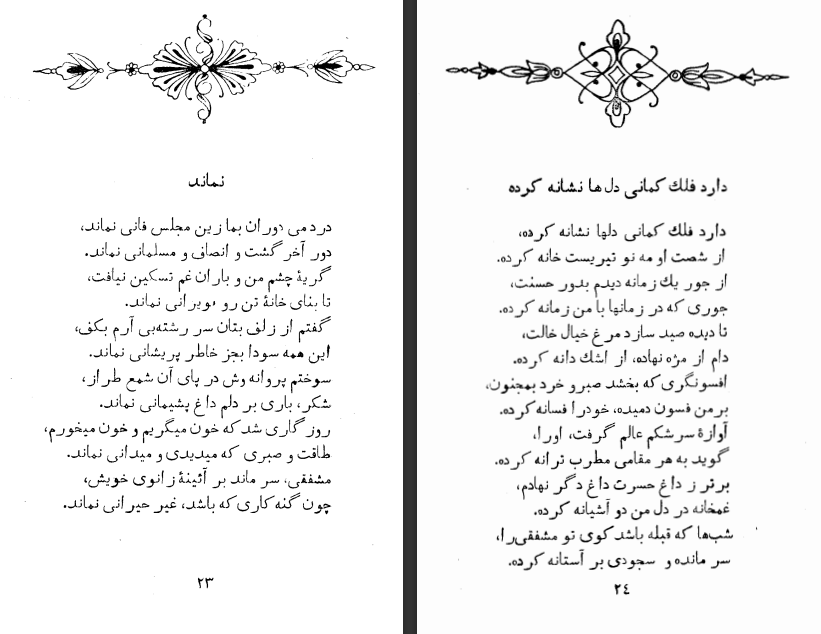 نماند
درد می دوران بما زین مجلس فانی نماند،
دور آخر گشت و انصاف و مسلمانی نماند.
گریهٔ چشم من و باران غم تسکین نیافت،
تا بنای خانهٔ تن رو بویرانی نماند.
گفتم از زلف بتان سر رشته‌یی آرم بکف،
این همه سودا بجز خاطر پریشانی نماند.
سوختم پروانه وش در پای آن شمع طراز،
شکر، باری بر دلم داغ پشیمانی نماند.
روز گاری شد که خون میگریم و خون میخورم،
طاقت و صبری که میدیدی و میدانی نماند.
مشفقی، سر ماند بر آئینهٔ زانوی خویش،
چون گنه کاری که باشد، غیر حیرانی نماند.
۲۳
دارد فلك كمانی دل ها نشانه كرده
دارد فلك كمانی دلها نشانه كرده،
از شصت او مه نو تیریست خانه كرده.
از جور یك زمانه دیدم بدور حسنت،
جوری كه در زمانها با من زمانه كرده.
تا دیده صید سازد مرغ خیال خالت،
دام از مژه نهاده، از اشك دانه كرده.
افسونگری كه بخشد صبر و خرد بمجنون،
بر من فسون دمیده، خود را فسانه كرده.
آوازهٔ سرشكم عالم گرفت، او را،
گوید به هر مقامی مطرب ترانه كرده.
برتر ز داغ حسرت داغ دگر نهادم،
غمخانه در دل من دو آشیانه كرده.
شب‌ها كه قبله باشد كوی تو مشفقی را،
سر مانده و سجودی بر آستانه كرده.
۲٤